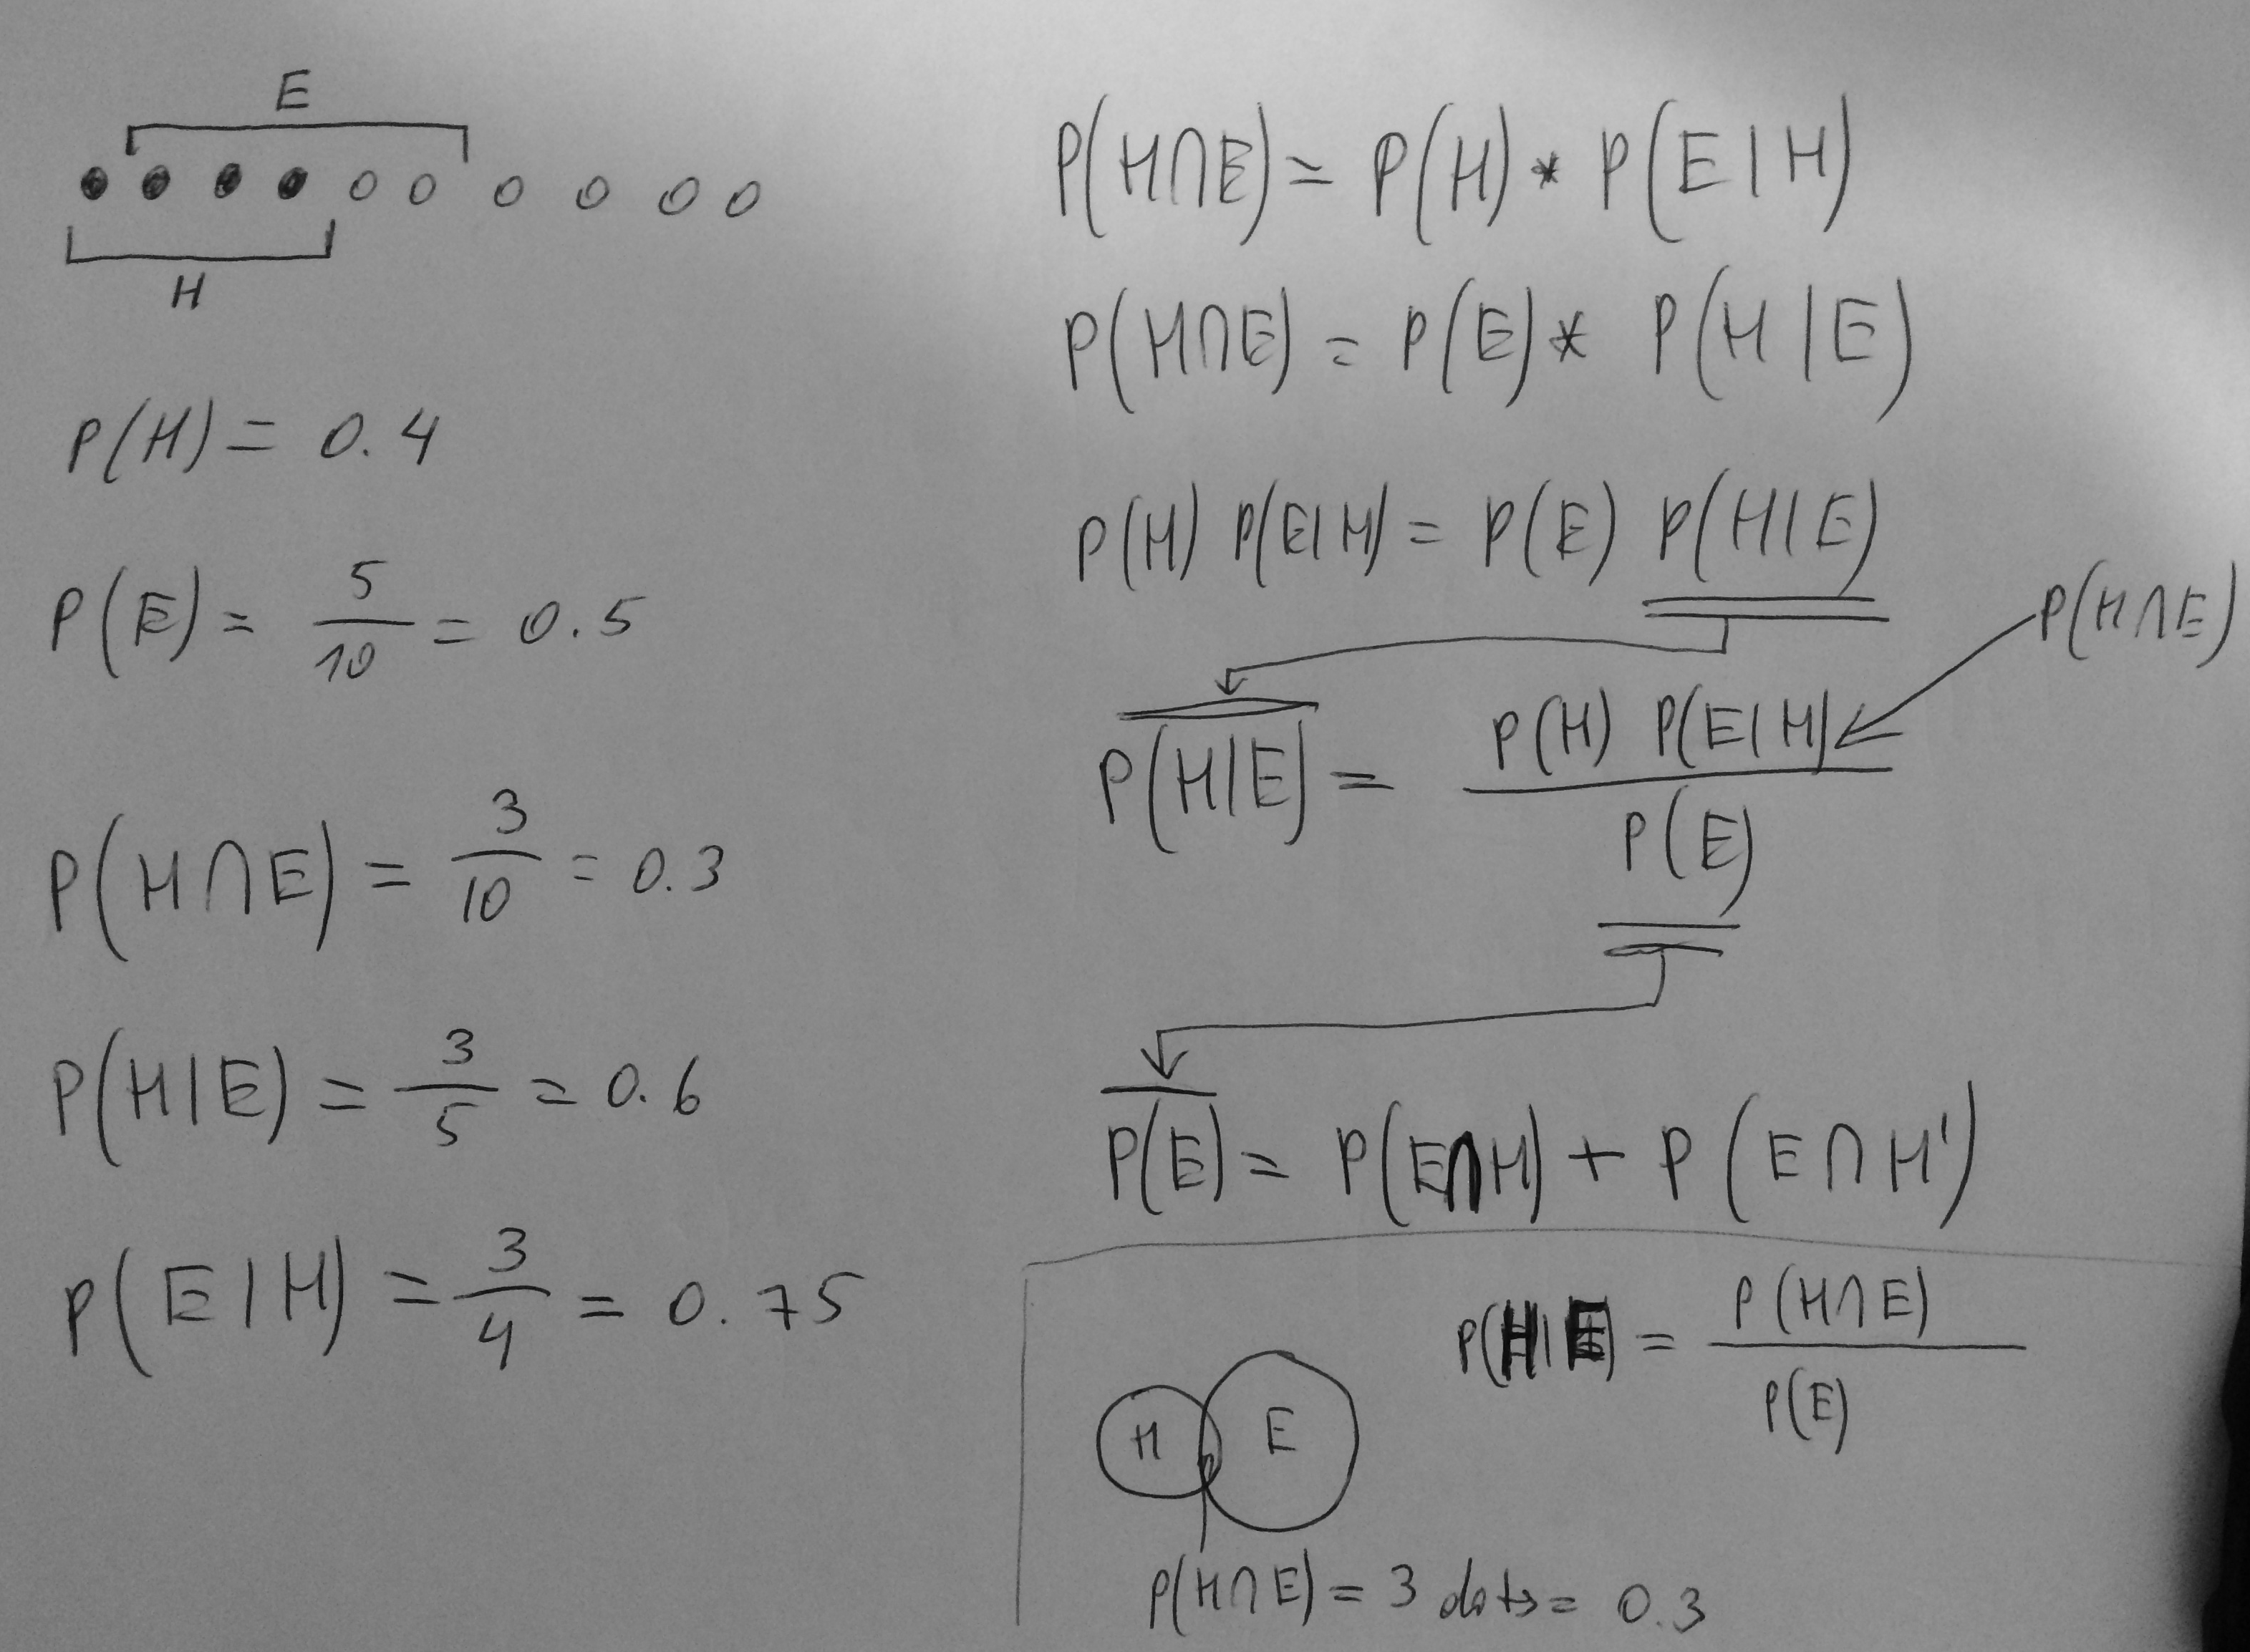 E
H
P(H) = 0.4
P(E) = 5/10 = 0.5
P(H∩E) = 3/10 = 0.3
P(H|E) = 3/5 = 0.6
P(E|H) = 3/4 = 0.75
P(H∩E) = P(H) * P(E|H)
P(H∩E) = P(E) * P(H|E)
P(H) P(E|H) = P(E) P(H|E)
P(H∩E)
P(H|E) = P(H) P(E|H) / P(E)
P(E) = P(E∩H) + P(E∩H')
P(H|E) = P(H∩E) / P(E)
H E
P(H∩E) = 3 dots = 0.3